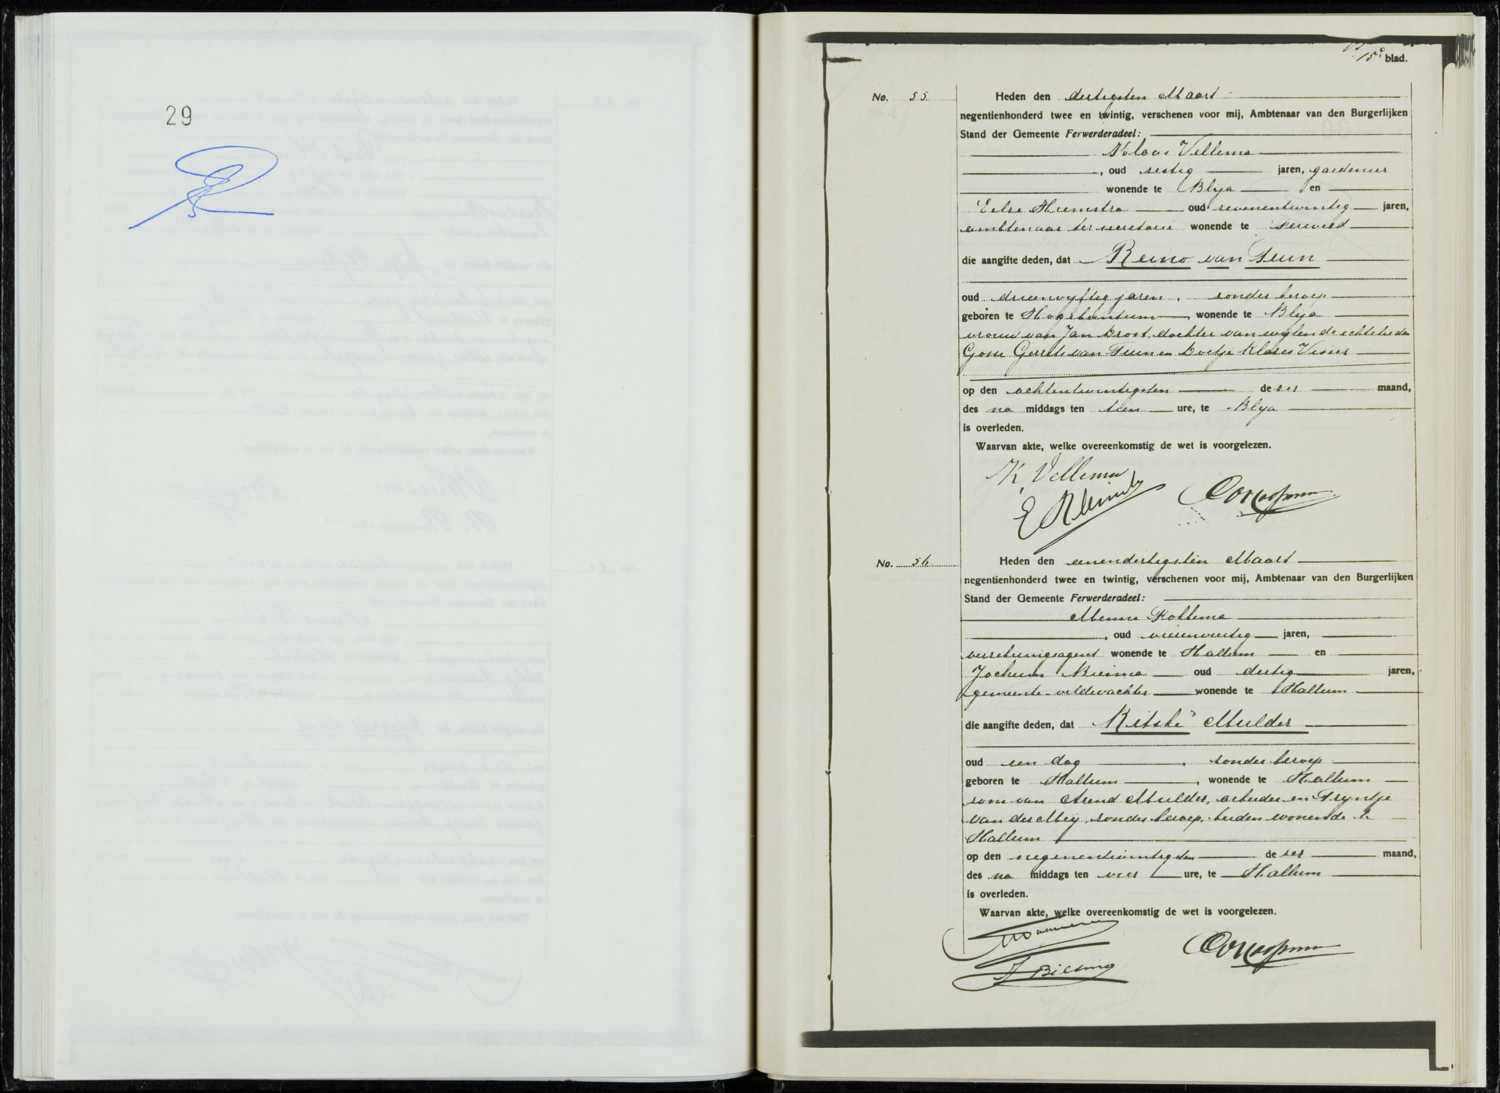 29
15e blad.
No. 55. Heden den dertigsten Maart
negentienhonderd twee en twintig, verschenen voor mij, Ambtenaar van den Burgerlijken
Stand der Gemeente Ferwerderadeel:
Klaas Vellema
, oud zestig jaren, gardenier
wonende te Blija en
Eelze Hiemstra oud zevenentwintig jaren,
ambtenaar ter secretarie wonende te Ferwerd
die aangifte deden, dat Reino van Tuin
oud drieenvijftig jaren, zonder beroep
geboren te Hogebeintum, wonende te Blija
vrouw van Jan Drost, dochter van wijlen de echtelieden
Gosse Gerrits van Tuin en Doetje Klases Visser
op den achtentwintigsten dezer maand,
des na middags ten tien ure, te Blija
is overleden.
Waarvan akte, welke overeenkomstig de wet is voorgelezen.
K. Vellema
E Hiemstra
No. 56. Heden den eenendertigsten Maart
negentienhonderd twee en twintig, verschenen voor mij, Ambtenaar van den Burgerlijken
Stand der Gemeente Ferwerderadeel:
Menne
, oud vierenveertig jaren,
verzekeringsagent wonende te Hallum en
Jochum Biesma oud dertig jaren,
gemeente-veldwachter wonende te Hallum
die aangifte deden, dat "Ritske" Mulder
oud een dag, zonder beroep
geboren te Hallum, wonende te Hallum
zoon van Arend Mulder, arbeider en Tryntje
van der Meij, zonder beroep, beiden wonende te
Hallum
op den negenentwintigsten dezer maand,
des na middags ten vier ure, te Hallum
is overleden.
Waarvan akte, welke overeenkomstig de wet is voorgelezen.
J Biesma